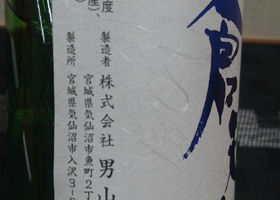 蒼天
度
産)
製造者 株式会社 男山
宮城県気仙沼市魚町2丁
製造所 宮城県気仙沼市入沢3-8